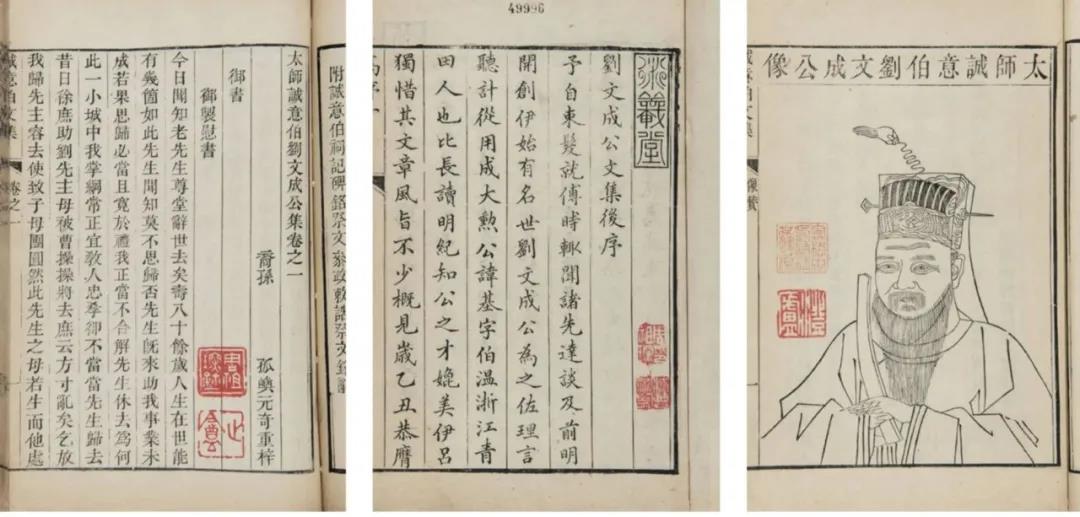 太師誠意伯劉文成公集卷之一
裔孫 孤嶼元奇重梓
御書
御製慰書
今日聞知老先生尊堂辭世去矣壽八十餘歲人生在世能
有幾箇如此先生聞知莫不思歸否先生旣來助我事業未
成若果思歸必當且寬於禮我正當不合解先生休去爲何
此一小城中我掌綱常正宜敎人忠孝卻不當當先生歸去
昔日徐庶助劉先主母被曹操操將去庶云方寸亂矣乞放
我歸先主容去使致子母團圓然此先生之母若生而他處
誠意伯文集
卷之一
附誠意伯祠記碑銘祭文
49996
劉文成公文集後序
予自束髮就傅時輒聞諸先達談及前明
開創伊始有名世劉文成公為之佐理言
聽計從用成大勲公諱基字伯温浙江青
田人也比長讀明紀知公之才媲美伊呂
獨惜其文章風旨不少概見歳乙丑恭膺
太師誠意伯劉文成公像
像贊